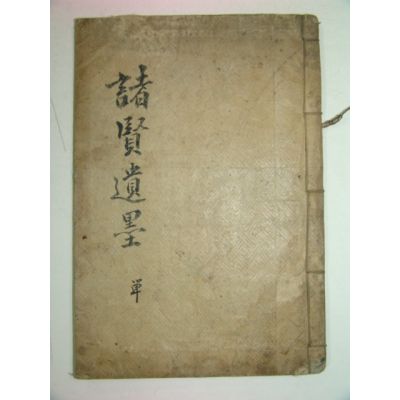 諸賢遺墨
單